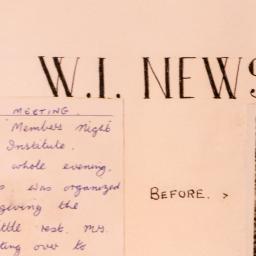 W.I. NEWS
MEETING.
Members night
Institute.
whole evening.
was organized
giving the
rest. Mrs.
over to
BEFORE. >